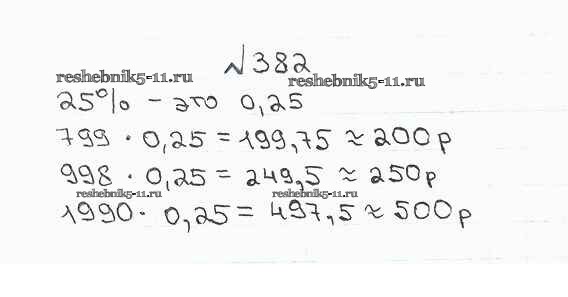 № 382
reshebnik5-11.ru
reshebnik5-11.ru
25% - это 0,25
799 · 0,25 = 199,75 ≈ 200 р
998 · 0,25 = 249,5 ≈ 250 р
reshebnik5-11.ru reshebnik5-11.ru
1990 · 0,25 = 497,5 ≈ 500 р